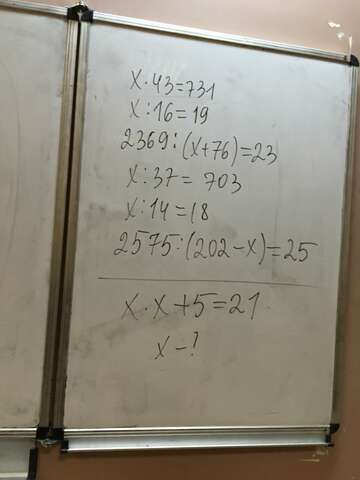 x·43=731
x:16=19
2369:(x+76)=23
x:37=703
x:14=18
2575:(202-x)=25
x·x+5=21
x-?